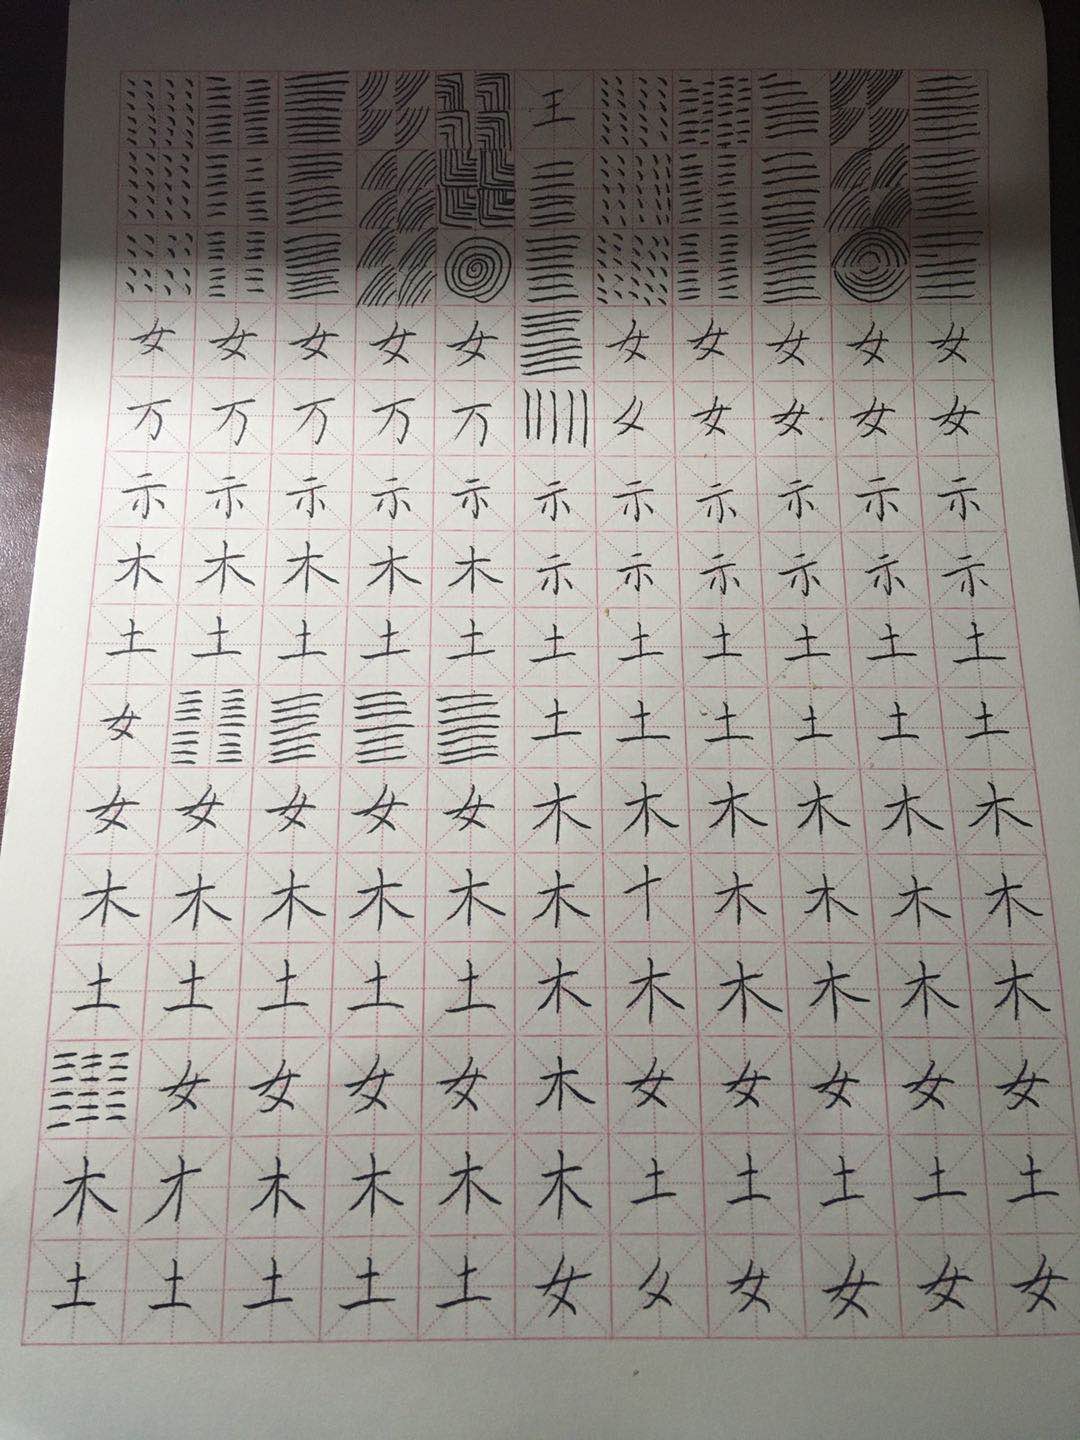 王
女女女女女女女女女女
万万万万万女女女女
示示示示示示示示示示示
木木木木木示示示示示示
土土土土土土土土土土土
女土土土土土土
女女女女女木木木木木木
木木木木木木十木木木木
土土土土土木木木木木木
女女女女木女女女女女
木才木木木木土土土土土
土土土土土女女女女女